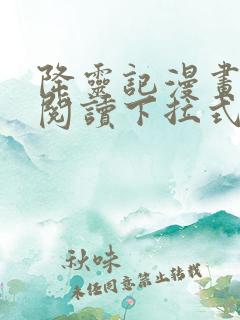 降靈記漫畫
閱讀下拉式
秋味
未经同意禁止转载